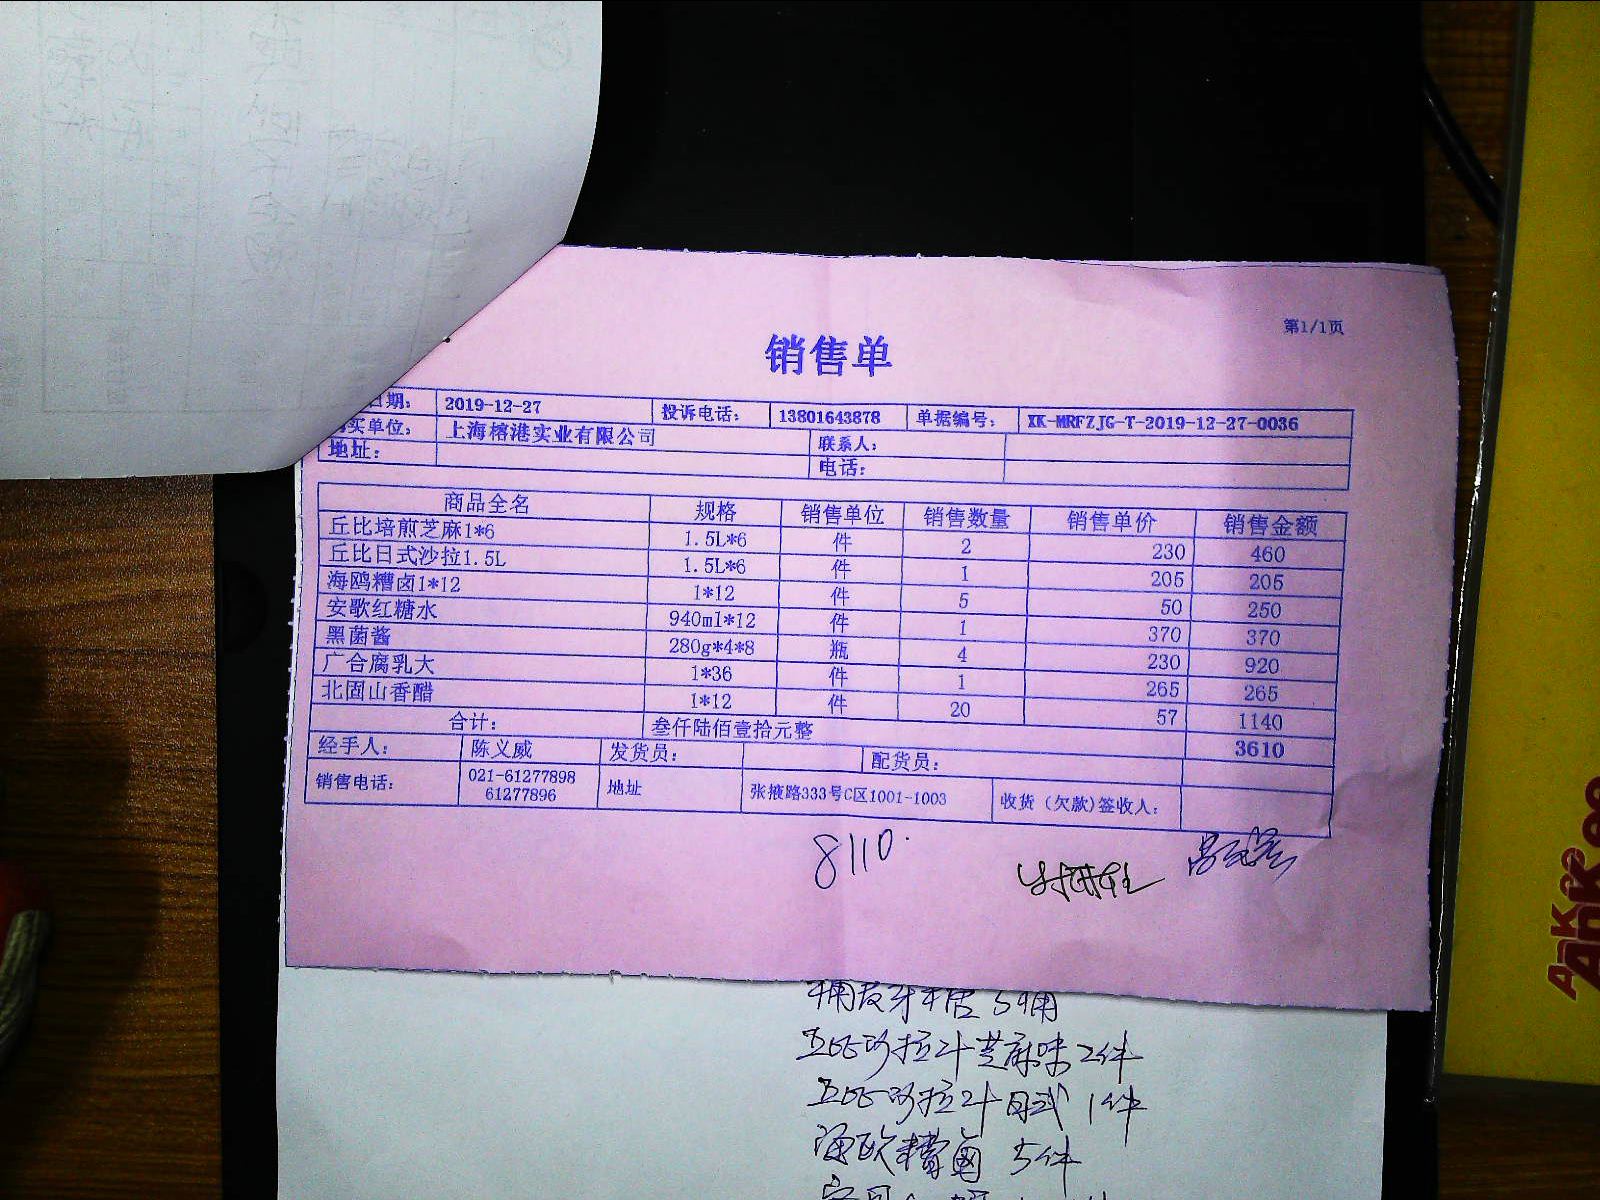 第1/1页
销售单
日期： 2019-12-27 投诉电话： 13801643878 单据编号： XK-MRFZJG-T-2019-12-27-0036
买单位： 上海榕港实业有限公司 联系人：
地址： 电话：
商品全名 规格 销售单位 销售数量 销售单价 销售金额
丘比培煎芝麻1*6 1.5L*6 件 2 230 460
丘比日式沙拉1.5L 1.5L*6 件 1 205 205
海鸥糟卤1*12 1*12 件 5 50 250
安歌红糖水 940ml*12 件 1 370 370
黑菌酱 280g*4*8 瓶 4 230 920
广合腐乳大 1*36 件 1 265 265
北固山香醋 1*12 件 20 57 1140
合计： 叁仟陆佰壹拾元整 3610
经手人： 陈义威 发货员： 配货员：
销售电话： 021-61277898 61277896 地址 张掖路333号C区1001-1003 收货（欠款)签收人：
8110
5桶
沙拉汁芝麻味2件
沙拉汁日式 1件
海欧糟卤 5件
Ankee